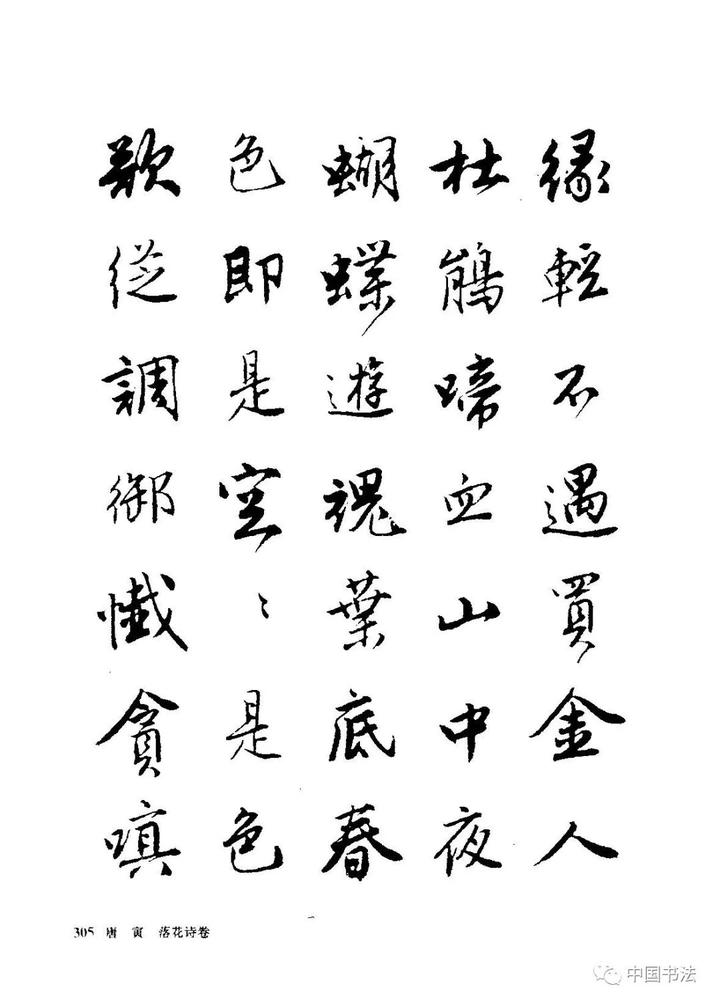 緣輕不遇買金人
杜鵑啼血山中夜
蝴蝶遊魂葉底春
色即是空〻是色
欲從調御懺貪嗔
305 唐 寅 落花诗卷
中国书法